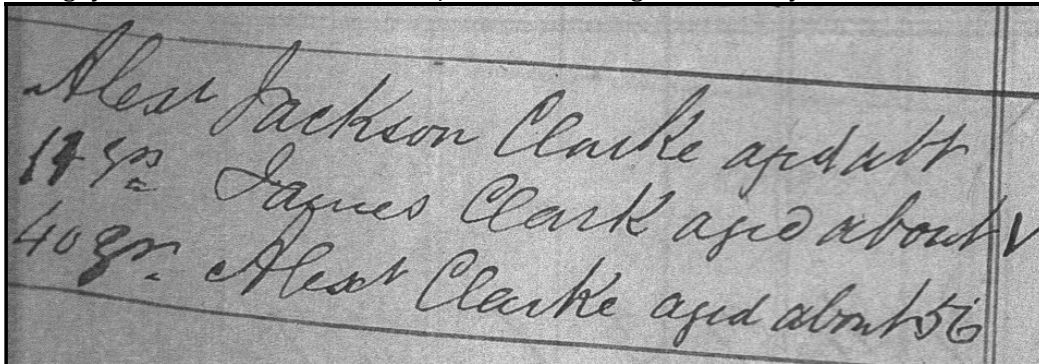 Alexr Jackson Clarke aged abt
yrs James Clark aged about
40 yrs. Alexr Clarke aged about 56